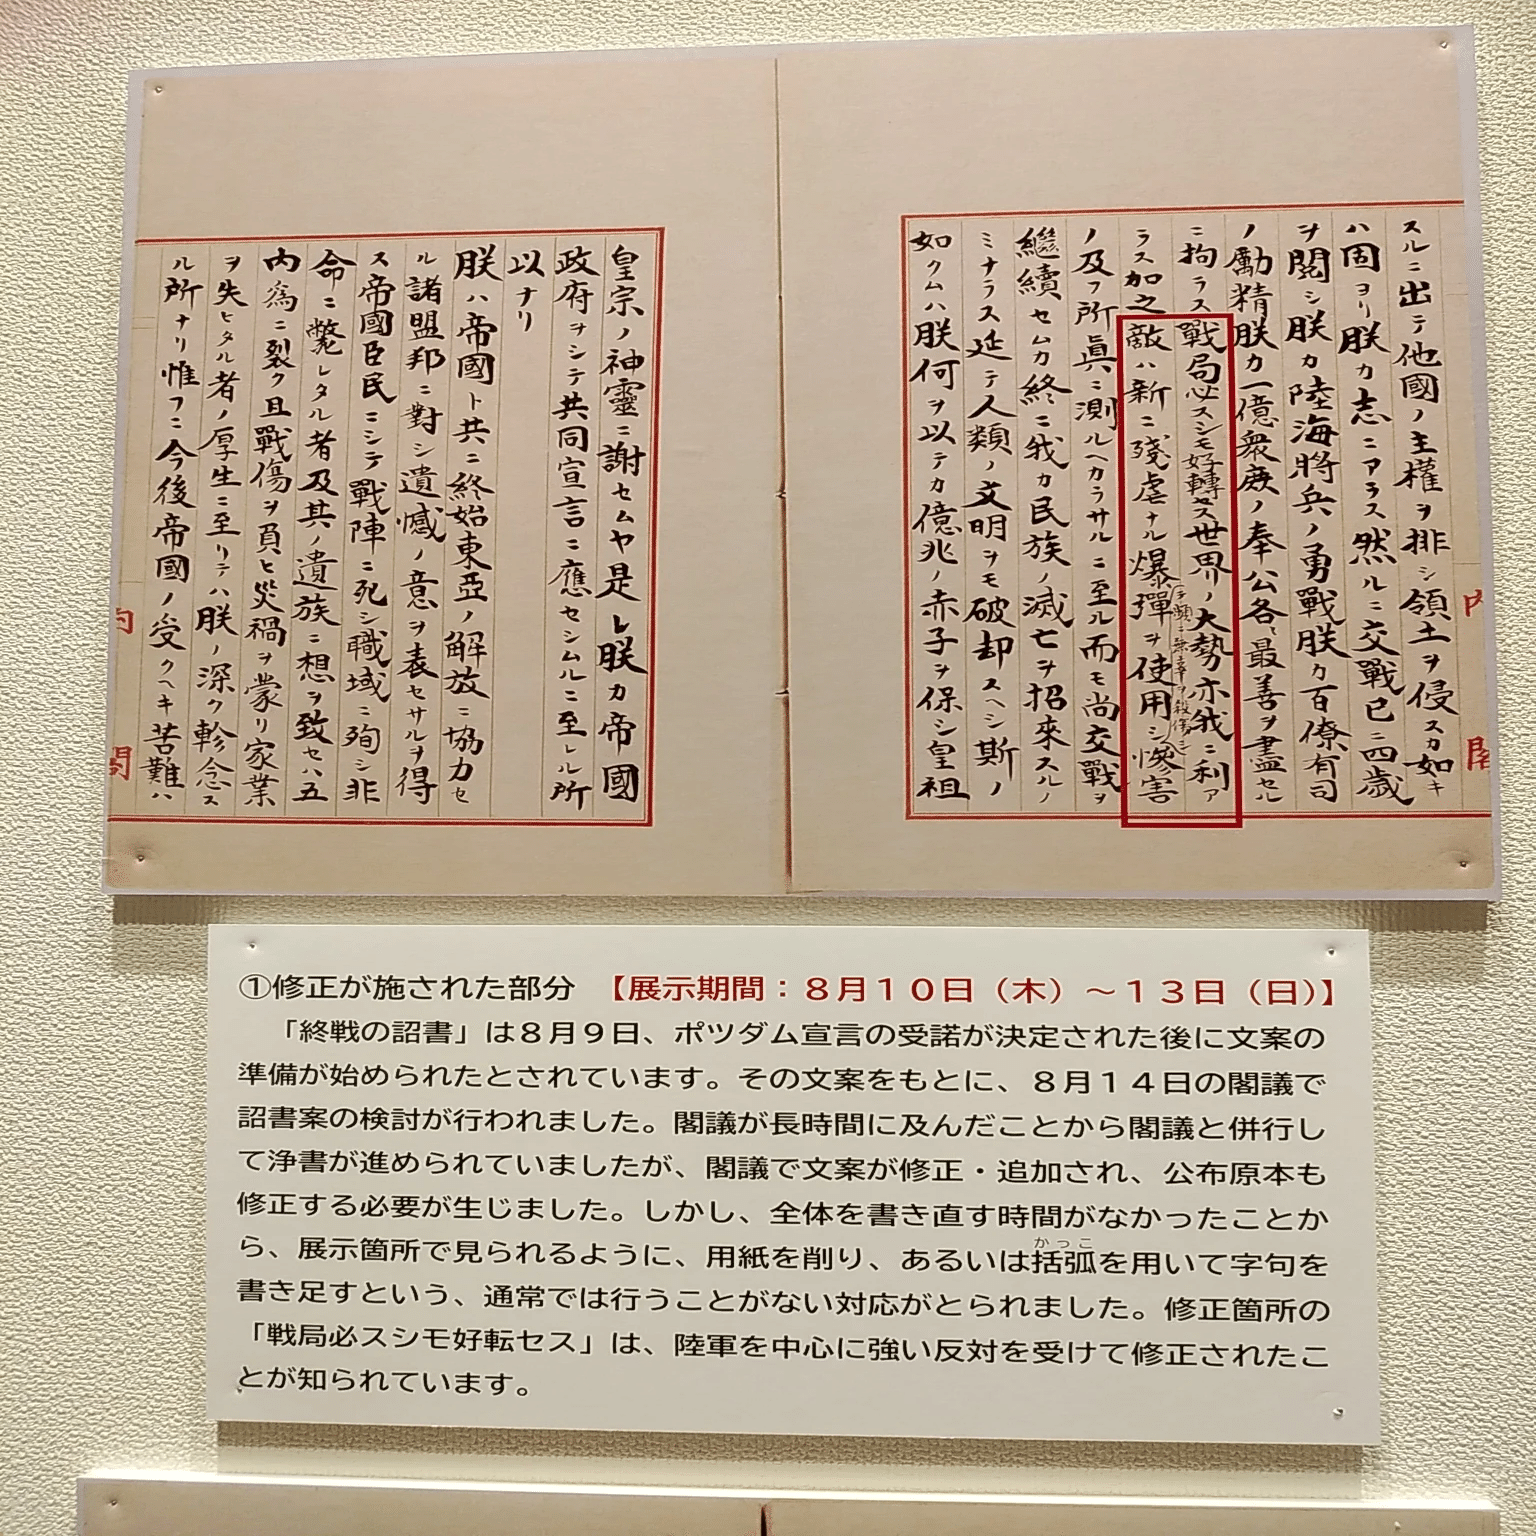 スルニ出テ他國ノ主權ヲ排シ領土ヲ侵スカ如キ
ハ固ヨリ朕カ志ニアラス然ルニ交戰已ニ四歳
ヲ閲シ朕カ陸海將兵ノ勇戰朕カ百僚有司
ノ勵精朕カ一億衆庶ノ奉公各〻最善ヲ盡セル
ニ拘ラス戰局必スシモ好轉セス世界ノ大勢亦我ニ利ア
ラス加之敵ハ新ニ殘虐ナル爆彈ヲ使用シ慘害
(テ頻ニ無辜ヲ殺傷シ)
ノ及フ所眞ニ測ルヘカラサルニ至ル而モ尚交戰ヲ
繼續セムカ終ニ我カ民族ノ滅亡ヲ招來スルノ
ミナラス延テ人類ノ文明ヲモ破却スヘシ斯ノ
如クムハ朕何ヲ以テカ億兆ノ赤子ヲ保シ皇祖
皇宗ノ神靈ニ謝セムヤ是レ朕カ帝國
政府ヲシテ共同宣言ニ應セシムルニ至レル所
以ナリ
朕ハ帝國ト共ニ終始東亞ノ解放ニ協力セ
ル諸盟邦ニ對シ遺憾ノ意ヲ表セサルヲ得
ス帝國臣民ニシテ戰陣ニ死シ職域ニ殉シ非
命ニ斃レタル者及其ノ遺族ニ想ヲ致セハ五
內爲ニ裂ク且戰傷ヲ負ヒ災禍ヲ蒙リ家業
ヲ失ヒタル者ノ厚生ニ至リテハ朕ノ深ク軫念ス
ル所ナリ惟フニ今後帝國ノ受クヘキ苦難ハ
内閣
内閣
①修正が施された部分　【展示期間：８月１０日（木）～１３日（日）】
「終戦の詔書」は８月９日、ポツダム宣言の受諾が決定された後に文案の
準備が始められたとされています。その文案をもとに、８月１４日の閣議で
詔書案の検討が行われました。閣議が長時間に及んだことから閣議と併行し
て浄書が進められていましたが、閣議で文案が修正・追加され、公布原本も
修正する必要が生じました。しかし、全体を書き直す時間がなかったことか
ら、展示箇所で見られるように、用紙を削り、あるいは括弧を用いて字句を
かっこ
書き足すという、通常では行うことがない対応がとられました。修正箇所の
「戦局必スシモ好転セス」は、陸軍を中心に強い反対を受けて修正されたこ
とが知られています。